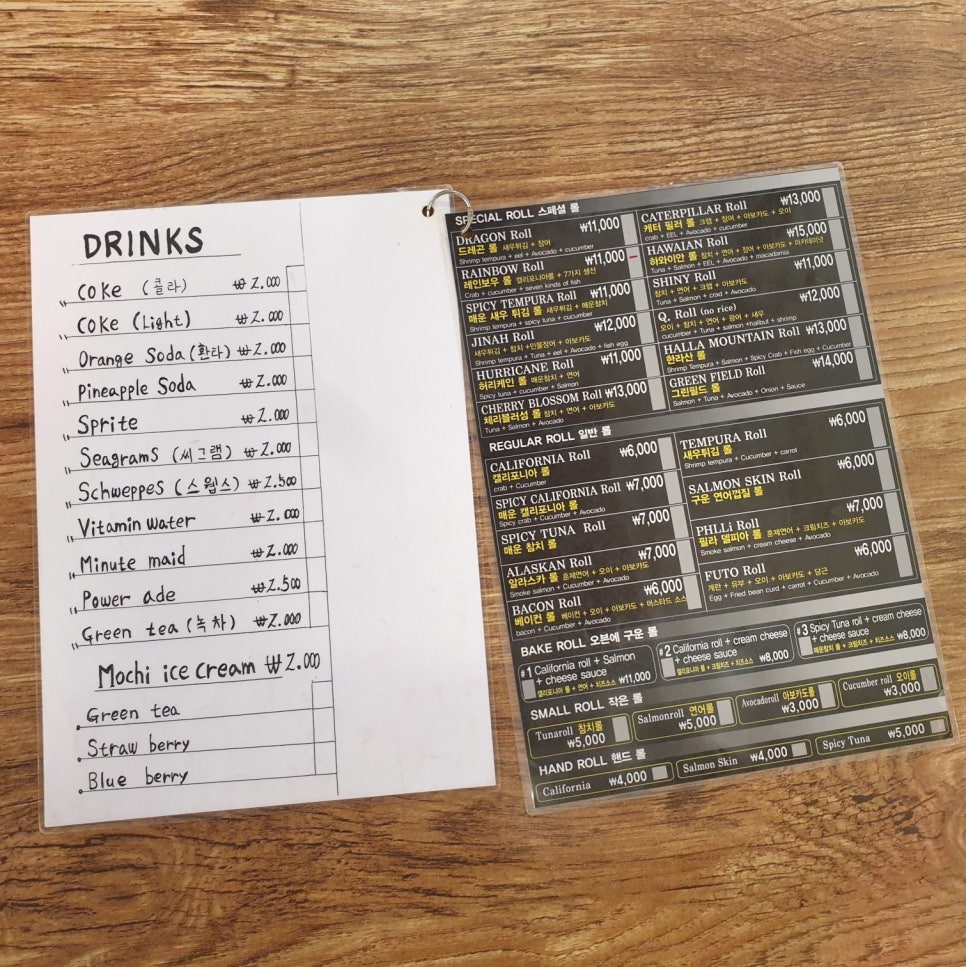 DRINKS
Coke (콜라) ₩2.000
Coke (Light) ₩2.000
Orange Soda (환타) ₩2.000
Pineapple Soda ₩2.000
Sprite ₩2.000
Seagrams (씨그램) ₩2.000
Schweppes (스웹스) ₩2.500
Vitamin water ₩2.000
Minute maid ₩2.000
Power ade ₩2.500
Green tea (녹차) ₩2.000
Mochi ice cream ₩2.000
Green tea
Straw berry
Blue berry
SPECIAL ROLL 스페셜 롤
DRAGON Roll ₩11,000
드레곤 롤 새우튀김 + 장어
Shrimp tempura + eel + Avocado + cucumber
RAINBOW Roll ₩11,000
레인보우 롤 캘리포니아롤 + 7가지 생선
Crab + cucumber + seven kinds of fish
SPICY TEMPURA Roll ₩11,000
매운 새우 튀김 롤 새우튀김 + 매운참치
Shrimp tempura + spicy tuna + cucumber
JINAH Roll ₩12,000
새우튀김 + 참치 +민물장어 + 아보카도
Shrimp tempura + Tuna + eel + Avocado + fish egg
HURRICANE Roll ₩11,000
허리케인 롤 매운참치 + 연어
Spicy tuna + cucumber + Salmon
CHERRY BLOSSOM Roll ₩13,000
체리블러섬 롤 참치 + 연어 + 아보카도
Tuna + Salmon + Avocado
CATERPILLAR Roll ₩13,000
케터 필러 롤 크랩 + 장어 + 아보카도 + 오이
crab + EEL + Avocado + cucumber
HAWAIAN Roll ₩15,000
하와이안 롤 참치 + 연어 + 장어 + 아보카도 + 마카데미넛
Tuna + Salmon + EEL + Avocado + macadamia
SHINY Roll ₩11,000
참치 + 연어 + 크랩 + 아보카도
Tuna + Salmon + crad + Avocado
Q. Roll (no rice) ₩12,000
오이 + 참치 + 연어 + 광어 + 새우
cucumber + Tuna + salmon +hailbut + shrimp
HALLA MOUNTAIN Roll ₩13,000
한라산 롤
Shrimp Tempura + Salmon + Spicy Crab + Fish egg + Cucumber
GREEN FIELD Roll ₩14,000
그린필드 롤
Salmon + Tuna + Avocado + Onion + Sauce
REGULAR ROLL 일반 롤
CALIFORNIA Roll ₩6,000
캘리포니아 롤
crab + Cucumber
SPICY CALIFORNIA Roll ₩7,000
매운 캘리포니아 롤
Spicy crab + Cucumber + Avocado
SPICY TUNA Roll ₩7,000
매운 참치 롤
ALASKAN Roll ₩7,000
알라스카 롤 훈제연어 + 오이 + 아보카도
Smoke salmon + Cucumber + Avocado
BACON Roll ₩6,000
베이컨 롤 베이컨 + 오이 + 아보카도 + 머스타드 소스
bacon + Cucumber + Avocado
TEMPURA Roll ₩6,000
새우튀김 롤
Shrimp tempura + Cucumber + carrot
SALMON SKIN Roll ₩6,000
구운 연어껍질 롤
PHLLi Roll ₩7,000
필라 델피아 롤 훈제연어 + 크림치즈 + 아보카도
Smoke salmon + cream cheese + Avocado
FUTO Roll ₩6,000
계란 + 유부 + 오이 + 아보카도 + 당근
Egg + Fried bean curd + carrot + Cucumber + Avocado
BAKE ROLL 오븐에 구운 롤
#1 California roll + Salmon
+ cheese sauce
캘리포니아 롤 + 연어 + 치즈소스 ₩11,000
#2 California roll + cream cheese
+ cheese sauce
캘리포니아 롤 + 크림치즈 + 치즈소스 ₩8,000
#3 Spicy Tuna roll + cream cheese
+ cheese sauce
매운참치 롤 + 크림치즈 + 치즈소스 ₩8,000
SMALL ROLL 작은 롤
Tunaroll 참치롤
₩5,000
Salmonroll 연어롤
₩5,000
Avocadoroll 아보카도롤
₩3,000
Cucumber roll 오이롤
₩3,000
HAND ROLL 핸드 롤
California ₩4,000
Salmon Skin ₩4,000
Spicy Tuna ₩5,000